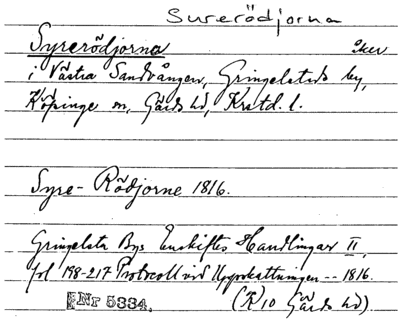 Surerödjorna
Syrerödjorna åker
i Västra Sandvången, Gringelstads by,
Köpinge sn, Gärds hd, Krstd. l.
Syre-Rödjorne 1816.
Gringelsta Bys Enskiftes Handlingar II,
fol 198-217 Protocoll vid Uppskattningen -- 1816.
Nr 5334. (K10 Gärds hd)